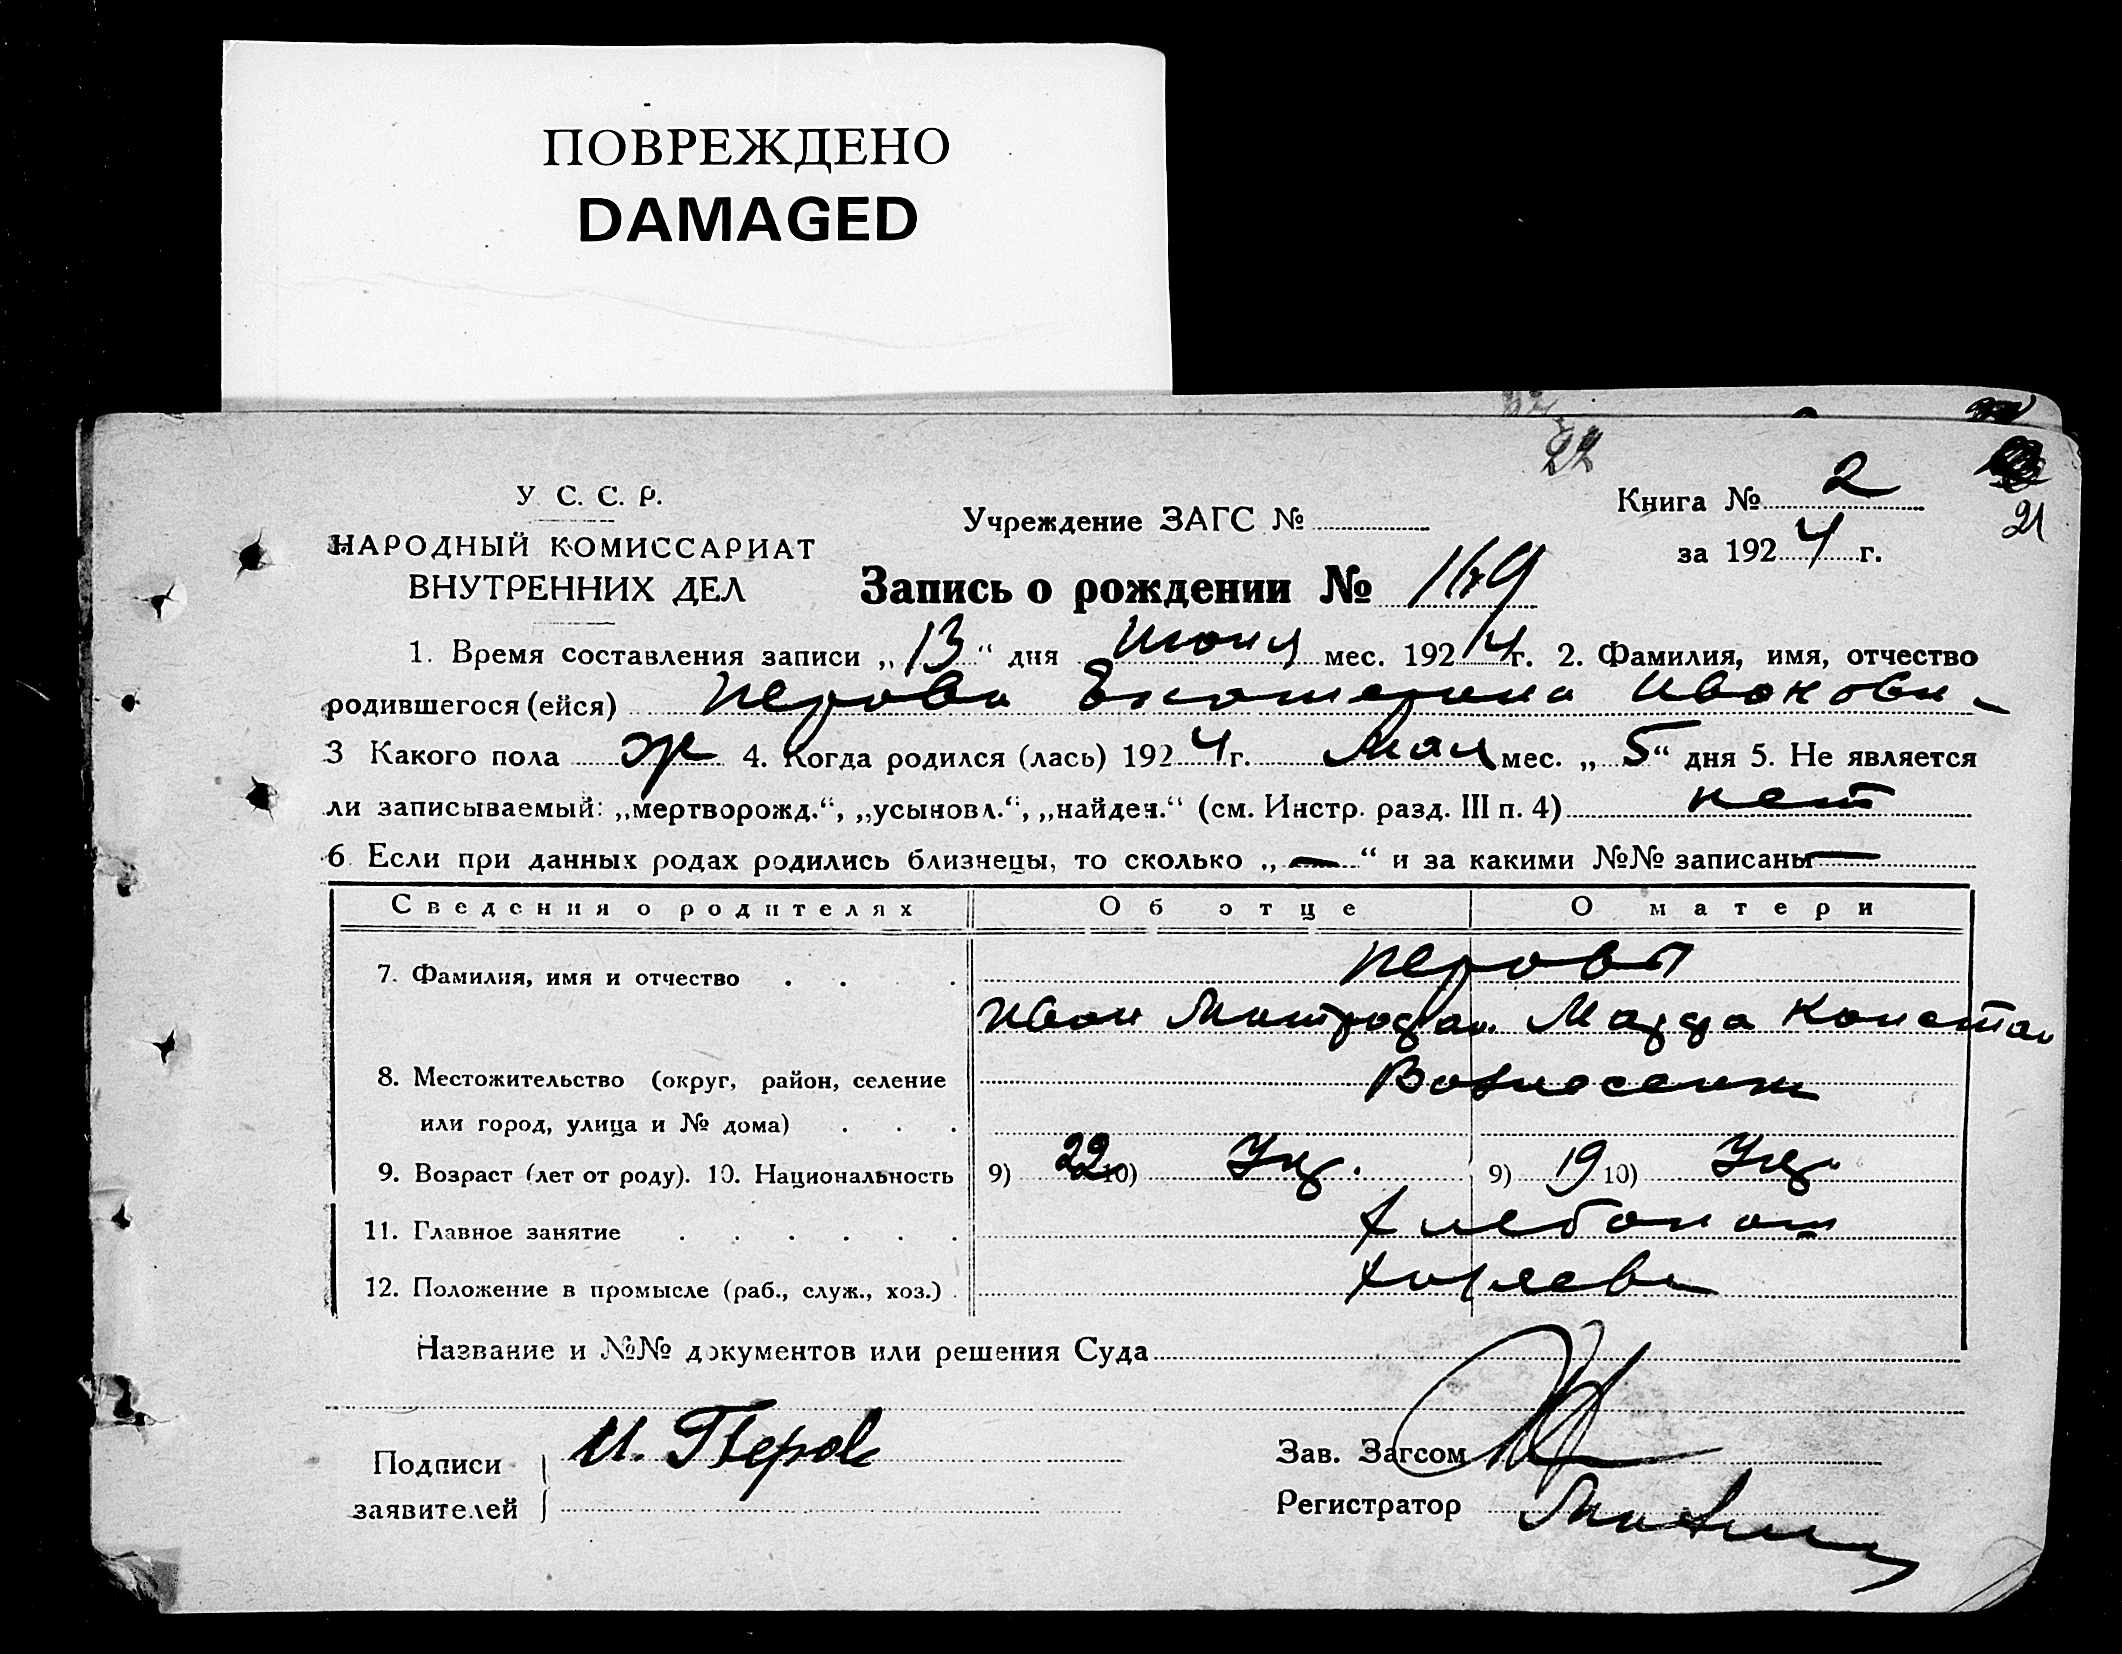 ПОВРЕЖДЕНО
DAMAGED
22
У. С. С. Р.
НАРОДНЫЙ КОМИССАРИАТ
ВНУТРЕННИХ ДЕЛ
Учреждение ЗАГС №
Книга № 2
21
за 1924 г.
Запись о рождении № 169
1. Время составления записи „13“ дня Июня мес. 1924 г. 2. Фамилия, имя, отчество
родившегося (ейся) Перова Екатерина Ивановн
3 Какого пола ж 4. Когда родился (лась) 1924 г. Мая мес. „5“ дня 5. Не является
ли записываемый: „мертворожд.“, „усыновл.“, „найден.“ (см. Инстр. разд. III п. 4) нет
6 Если при данных родах родились близнецы, то сколько „—“ и за какими №№ записаны —
Сведения о родителях Об отце О матери
7. Фамилия, имя и отчество . . . Перовы
Иван Митрофан. Марфа Констан
8. Местожительство (округ, район, селение Вознесенск
или город, улица и № дома) . . .
9. Возраст (лет от роду). 10. Национальность 9) 22 10) Укр. 9) 19 10) Укр.
11. Главное занятие . . . . . . Хлебопаш
12. Положение в промысле (раб., служ., хоз.) .
Название и №№ документов или решения Суда
Подписи заявителей И. Перов
Зав. Загсом
Регистратор